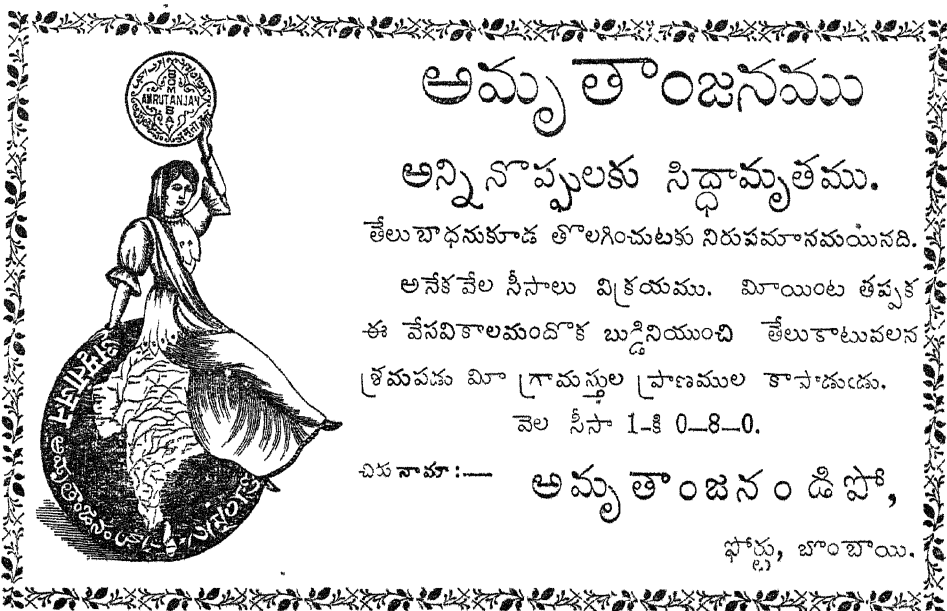 BOMBAY
AMRUTANJAN
అమృతాంజనము
అన్ని నొప్పులకు సిద్ధామృతము.
తేలు బాధనుకూడ తొలగించుటకు నిరుపమానమయినది.
అనేక వేల సీసాలు విక్రయము. మీయింట తప్పక
ఈ వేసవికాలమందొక బుడ్డినియుంచి తేలుకాటువలన
శ్రమపడు మీ గ్రామస్తుల ప్రాణముల కాపాడుఁడు.
వెల సీసా 1-కి 0—8—0.
చిరునామా :—
అమృతాంజనం డిపో,
ఫోర్టు, బొంబాయి.
అమృతాంజనం